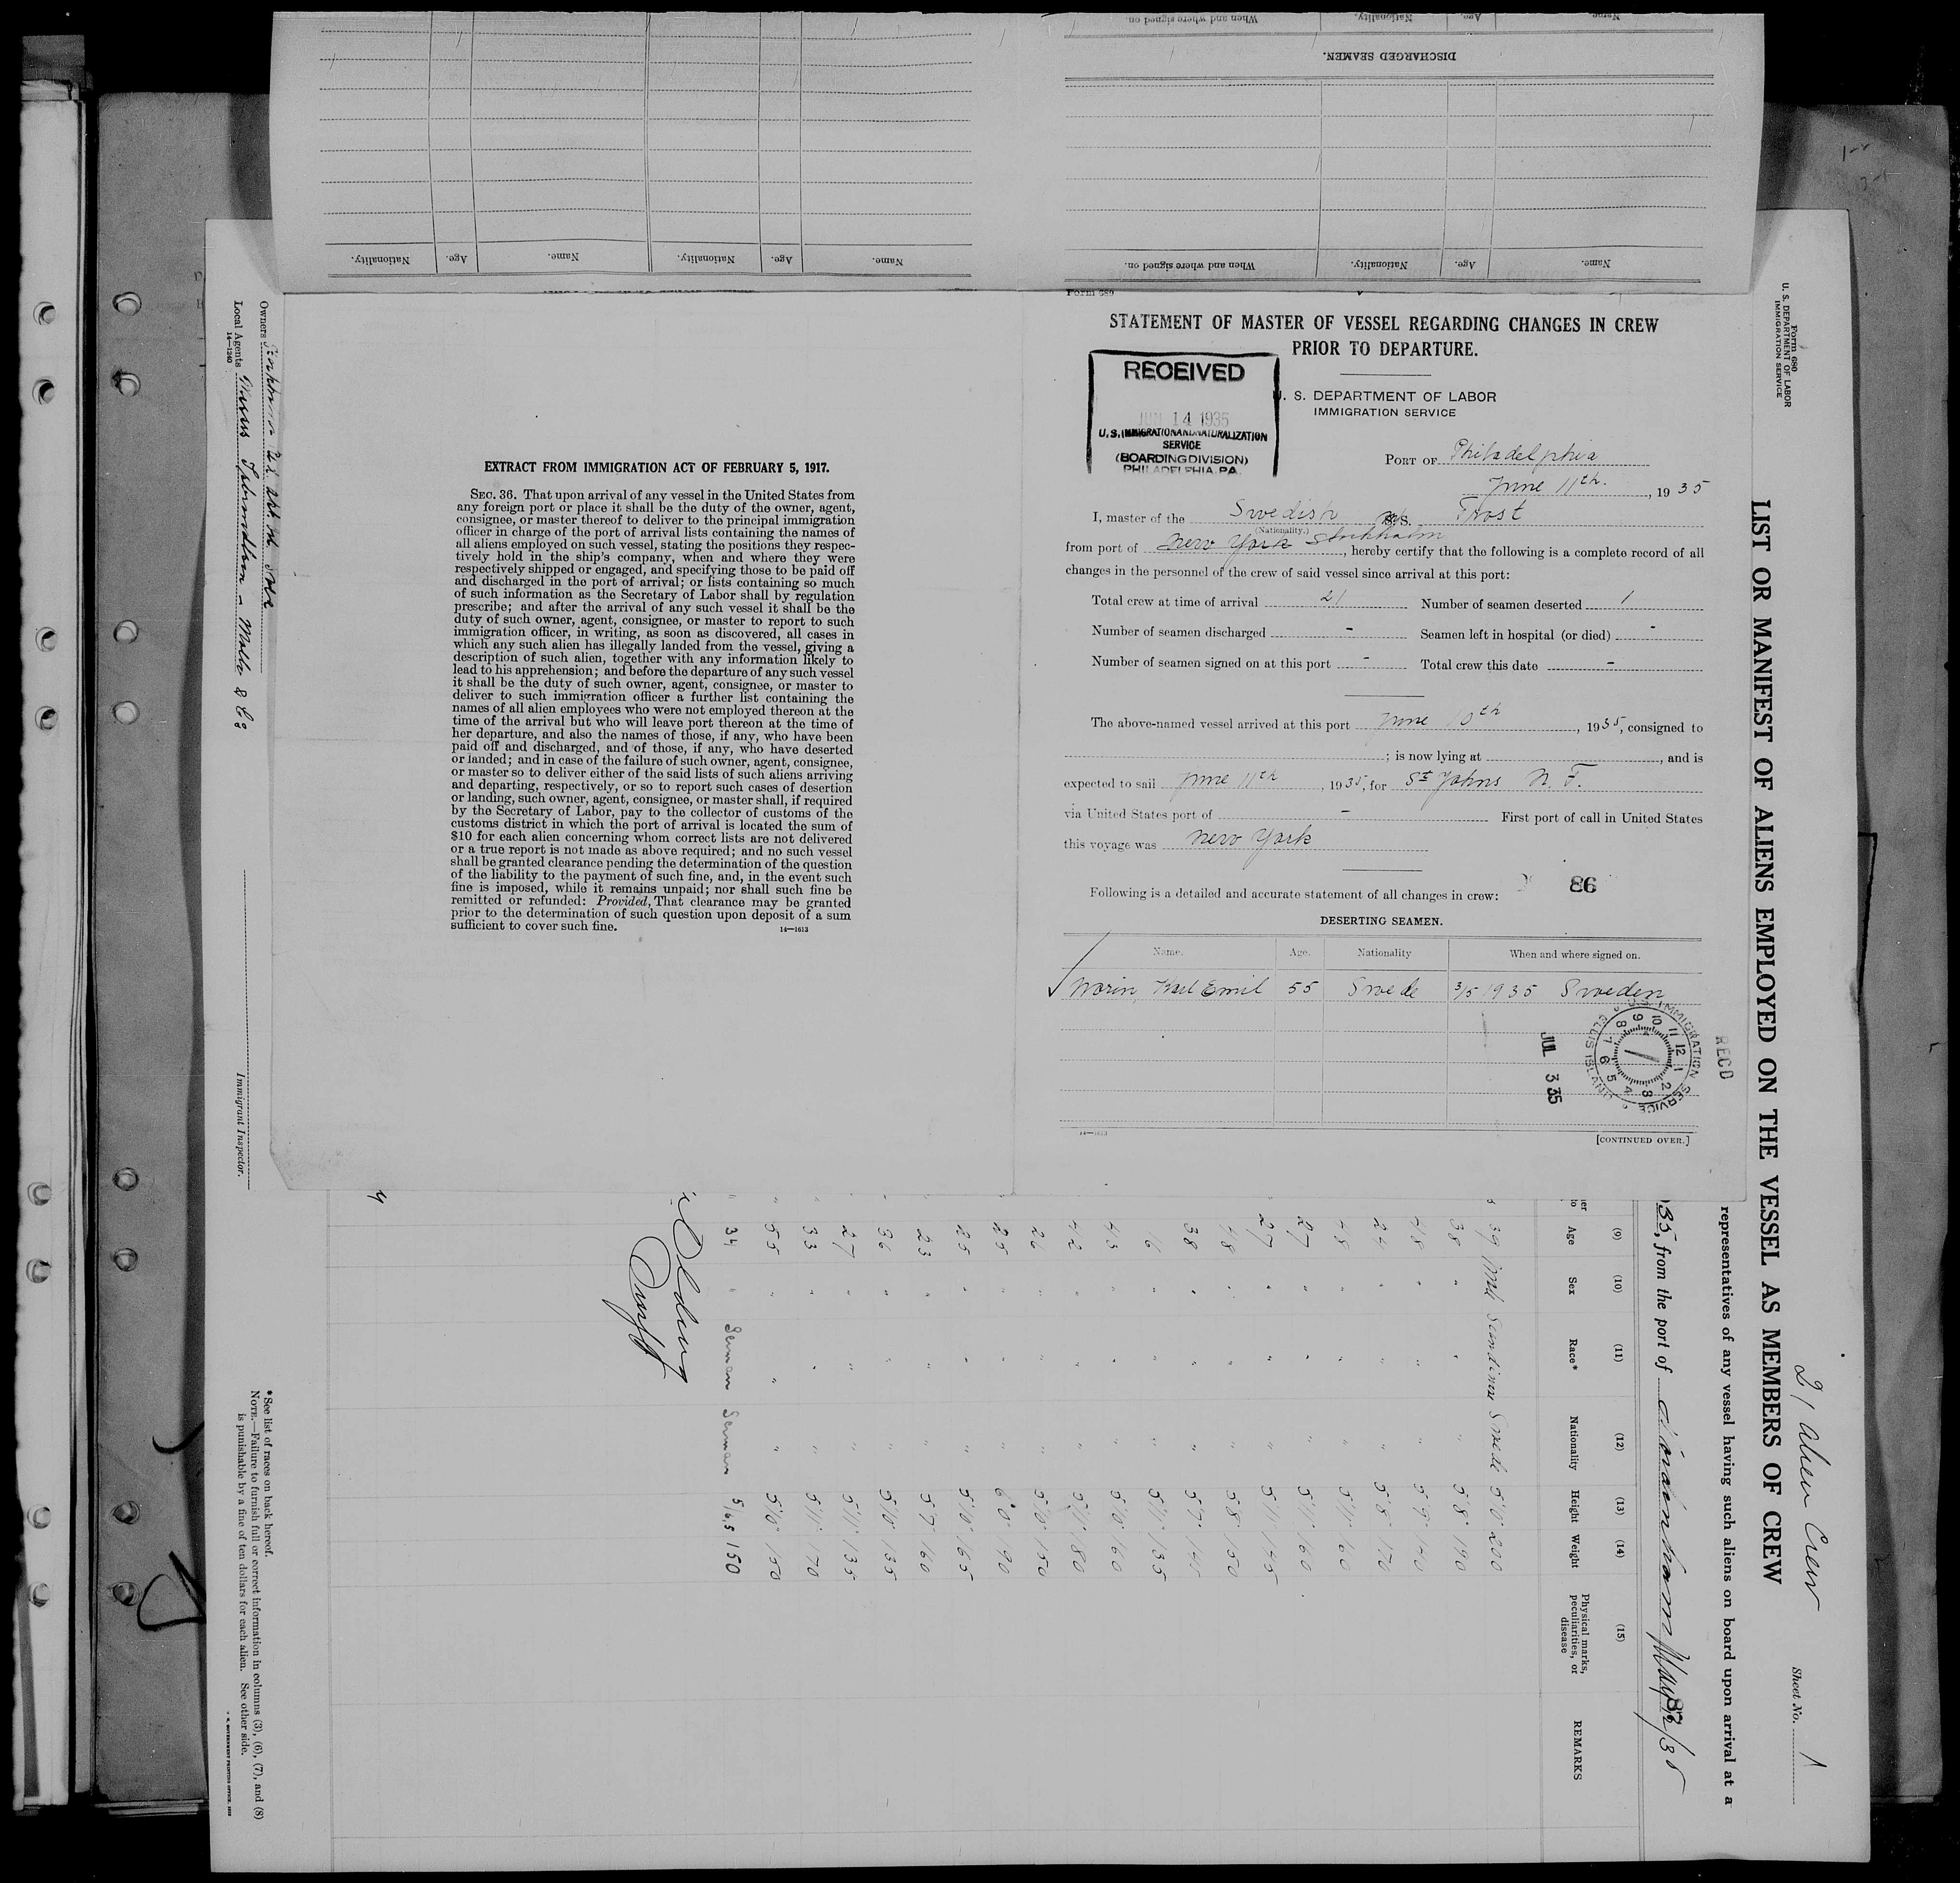 When and where signed on.
Nationality.
Age.
Name.
DISCHARGED SEAMEN.
Name.
Age.
Nationality.
Name.
Age.
Nationality.
Name.
Age.
Nationality.
When and where signed on.
Form 689
STATEMENT OF MASTER OF VESSEL REGARDING CHANGES IN CREW
PRIOR TO DEPARTURE.
RECEIVED
JUN 14 1935
U.S. IMMIGRATION AND NATURALIZATION
SERVICE
(BOARDING DIVISION)
PHILADELPHIA, PA.
U. S. DEPARTMENT OF LABOR
IMMIGRATION SERVICE
PORT OF Philadelphia
June 11th. , 1935
I, master of the Swedish S. Trost
(Nationality.)
from port of New York Stockholm , hereby certify that the following is a complete record of all
changes in the personnel of the crew of said vessel since arrival at this port:
Total crew at time of arrival 21 Number of seamen deserted 1
Number of seamen discharged - Seamen left in hospital (or died) -
Number of seamen signed on at this port - Total crew this date -
The above-named vessel arrived at this port June 10th , 1935, consigned to
; is now lying at , and is
expected to sail June 11th , 1935, for St Johns N. F.
via United States port of - First port of call in United States
this voyage was New York
86
Following is a detailed and accurate statement of all changes in crew:
DESERTING SEAMEN.
Name. Age. Nationality When and where signed on.
Norin, Karl Emil 55 Swede 3/5 1935 Sweden
U.S. IMMIGRATION SERVICE ELLIS ISLAND
12 1 2 3 4 5 6 7 8 9 10 11
REC'D
JUL 3 35
14-1613
[CONTINUED OVER.]
EXTRACT FROM IMMIGRATION ACT OF FEBRUARY 5, 1917.
SEC. 36. That upon arrival of any vessel in the United States from
any foreign port or place it shall be the duty of the owner, agent,
consignee, or master thereof to deliver to the principal immigration
officer in charge of the port of arrival lists containing the names of
all aliens employed on such vessel, stating the positions they respec-
tively hold in the ship's company, when and where they were
respectively shipped or engaged, and specifying those to be paid off
and discharged in the port of arrival; or lists containing so much
of such information as the Secretary of Labor shall by regulation
prescribe; and after the arrival of any such vessel it shall be the
duty of such owner, agent, consignee, or master to report to such
immigration officer, in writing, as soon as discovered, all cases in
which any such alien has illegally landed from the vessel, giving a
description of such alien, together with any information likely to
lead to his apprehension; and before the departure of any such vessel
it shall be the duty of such owner, agent, consignee, or master to
deliver to such immigration officer a further list containing the
names of all alien employees who were not employed thereon at the
time of the arrival but who will leave port thereon at the time of
her departure, and also the names of those, if any, who have been
paid off and discharged, and of those, if any, who have deserted
or landed; and in case of the failure of such owner, agent, consignee,
or master so to deliver either of the said lists of such aliens arriving
and departing, respectively, or so to report such cases of desertion
or landing, such owner, agent, consignee, or master shall, if required
by the Secretary of Labor, pay to the collector of customs of the
customs district in which the port of arrival is located the sum of
$10 for each alien concerning whom correct lists are not delivered
or a true report is not made as above required; and no such vessel
shall be granted clearance pending the determination of the question
of the liability to the payment of such fine, and, in the event such
fine is imposed, while it remains unpaid; nor shall such fine be
remitted or refunded: Provided, That clearance may be granted
prior to the determination of such question upon deposit of a sum
sufficient to cover such fine.
14-1613
Form 680
U. S. DEPARTMENT OF LABOR
IMMIGRATION SERVICE
21 Alien Crew
Sheet No. 1
LIST OR MANIFEST OF ALIENS EMPLOYED ON THE VESSEL AS MEMBERS OF CREW
representatives of any vessel having such aliens on board upon arrival at a
35, from the port of
(9) (10) (11) (12) (13) (14) (15)
Age Sex Race* Nationality Height Weight Physical marks, peculiarities, or disease REMARKS
39 Swede 5'10 200
38 " " " 5'8 190
48 " " " 5'9 140
24 " " " 5'8 170
48 " " " 5'11 160
27 " " " 5'11 160
27 " " " 5'11 145
48 " " " 5'8 150
38 " " " 5'7 145
16 " " " 5'11 135
43 " " " 5'10 160
42 " " " 5'11 180
26 " " " 5'10 150
25 " " " 6'0 190
25 " " " 5'10 165
23 " " " 5'7 160
36 " " " 5'10 135
27 " " " 5'11 135
33 " " " 5'11 170
55 " " " 5'10 150
34 " German German 150
Owners
Local Agents
14-1240
Immigrant Inspector.
*See list of races on back hereof.
NOTE.—Failure to furnish full or correct information in columns (3), (6), (7), and (8)
is punishable by a fine of ten dollars for each alien. See other side.